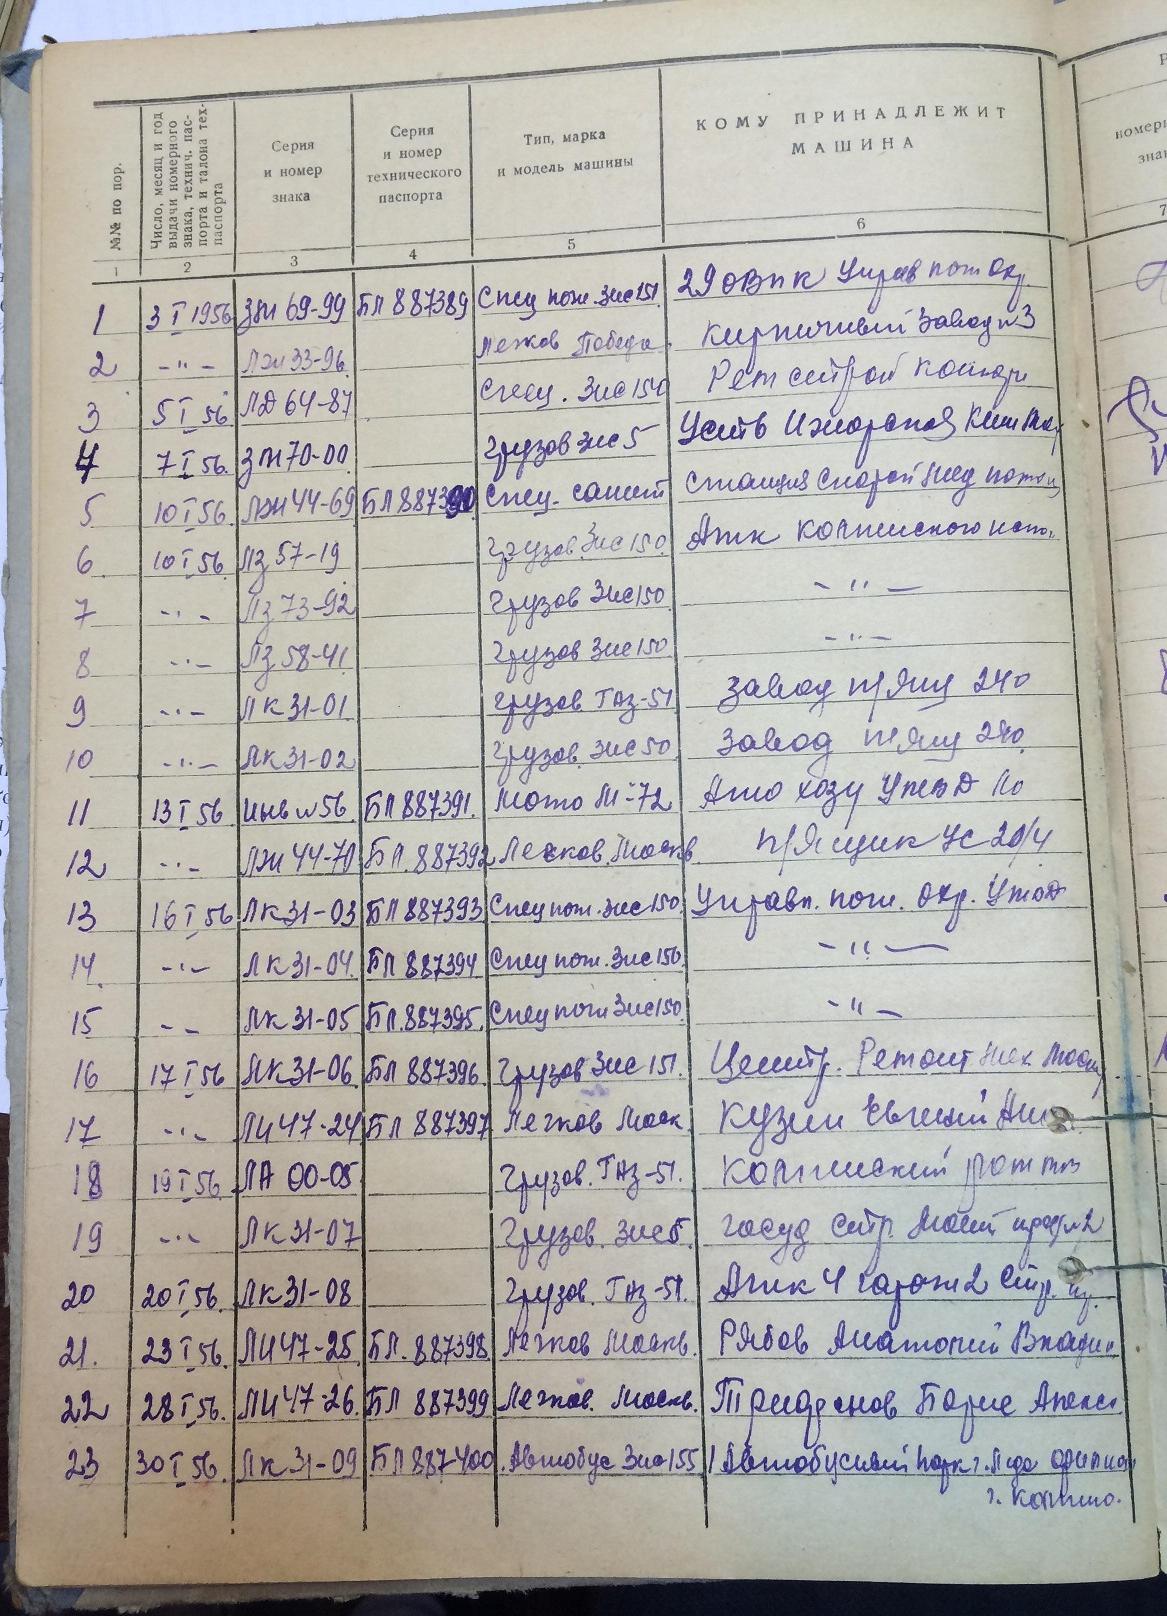 №№ по пор.
Число, месяц и год выдачи номерного знака, технич. паспорта и талона техпаспорта
Серия и номер знака
Серия и номер технического паспорта
Тип, марка и модель машины
КОМУ ПРИНАДЛЕЖИТ МАШИНА
номерн
знак
1 2 3 4 5 6 7
1 3 I 1956 69-99 БЛ 887389 Спец пож. Зис 151 29 ОВПК Управ пож Окр.
2 -"- 33-96 Легков Победа Кирпичный завод №3
3 5 I 56 ЛД 64-87 Спец. Зис 150 Ремстрой контора
4 7 I 56. 70-00 Грузов Зис 5 Усть Ижорская
5 10 I 56 ЛЖ 44-69 БЛ 887390 Спец. санит Станция Скорой Мед помощ
6 10 I 56 ЛЗ 57-19 Грузов. Зис 150 Атк Колпинского
7 -"- ЛЗ 73-92 Грузов Зис 150 -"-
8 -"- ЛЗ 58-41 Грузов Зис 150 -"-
9 -"- ЛК 31-01 Грузов ГАЗ-51 Завод п/Ящ 240
10 -"- ЛК 31-02 Грузов. Зис 50 Завод п/Ящ 240
11 13 I 56 56 БЛ 887391. Мото М-72 Ато хозу ЛО
12 -"- ЛЖ 44-70 БЛ. 887392 Легков. Москв п/Ящик УС 20/4
13 16 I 56 ЛК 31-03 БЛ 887393 Спец пож. Зис 150 Управл. пож. Окр.
14. -"- ЛК 31-04. БЛ 887394 Спец пож. Зис 150. -"-
15 -- ЛК 31-05 БЛ. 887395. Спец пож Зис 150. -"-
16 17 I 56 ЛК 31-06 БЛ 887396. Грузов Зис 151. Центр. Ремонт Мех
17 -"- ЛИ 47-24 БЛ 887397 Легков Моск Кузин Евгений
18 19 I 56 ЛА 00-05 Грузов. ГАЗ-51. Колпинский
19 -"- ЛК 31-07 Грузов. Зис 5. Госуд стр.
20 20 I 56. ЛК 31-08 Грузов. ГАЗ-51. Атк 4 гараж 2 Стр.
21. 23 I 56. ЛИ 47-25 БЛ. 887398. Легков Москв. Рябов Анатолий Владим
22 28 I 56. ЛИ 47-26. БЛ 887399 Легков. Москв. Борис Алекс
23 30 I 56. ЛК 31-09 БЛ 887400 Автобус Зис 155 1 Автобусный Парк
г. Колпино.